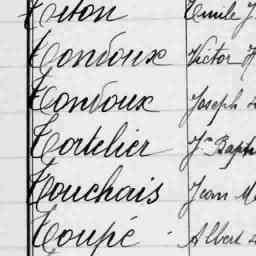 Titon Emile J
Tonroux Victor H
Tonroux Joseph
Tortelier J Bapt
Touchais Jean M
Toupé Albert